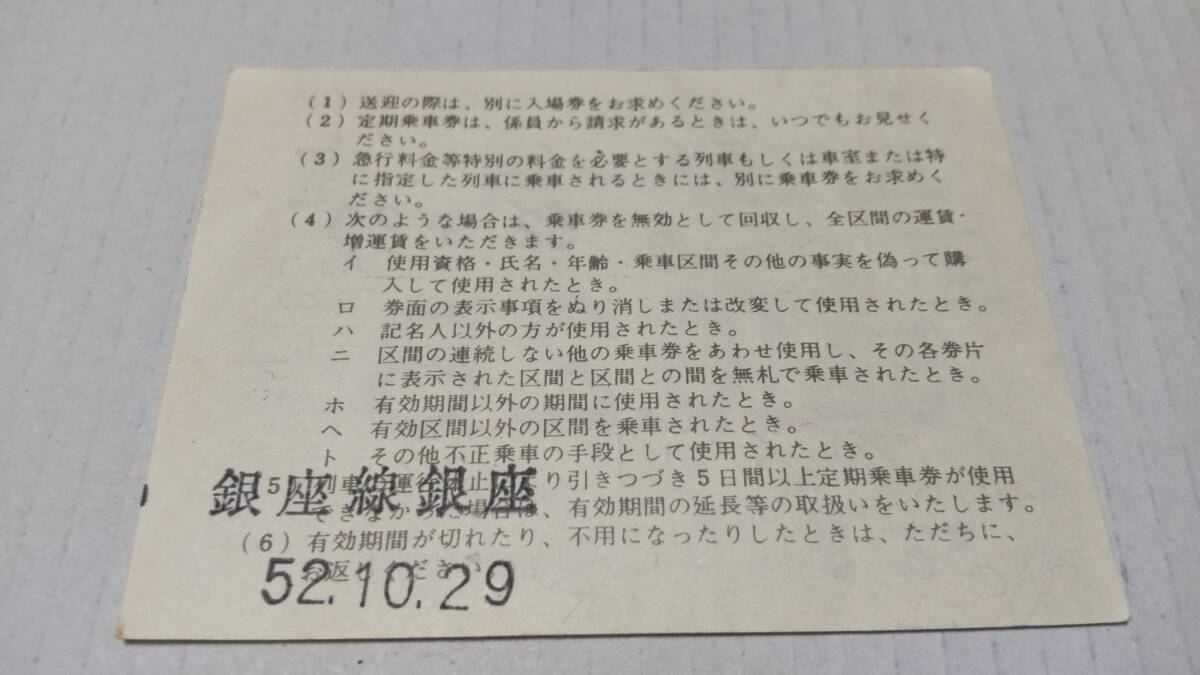 (1) 送迎の際は、別に入場券をお求めください。
(2) 定期乗車券は、係員から請求があるときは、いつでもお見せく
ださい。
(3) 急行料金等特別の料金を必要とする列車もしくは車室または特
に指定した列車に乗車されるときには、別に乗車券をお求めく
ださい。
(4) 次のような場合は、乗車券を無効として回収し、全区間の運賃・
増運賃をいただきます。
イ 使用資格・氏名・年齢・乗車区間その他の事実を偽って購
入して使用されたとき。
ロ 券面の表示事項をぬり消しまたは改変して使用されたとき。
ハ 記名人以外の方が使用されたとき。
ニ 区間の連続しない他の乗車券をあわせ使用し、その各券片
に表示された区間と区間との間を無札で乗車されたとき。
ホ 有効期間以外の期間に使用されたとき。
ヘ 有効区間以外の区間を乗車されたとき。
ト その他不正乗車の手段として使用されたとき。
5) 列車 運行 止 より引きつづき5日間以上定期乗車券が使用
できなかった場合は、有効期間の延長等の取扱いをいたします。
銀座線銀座
(6) 有効期間が切れたり、不用になったりしたときは、ただちに、
お返しください
52.10.29